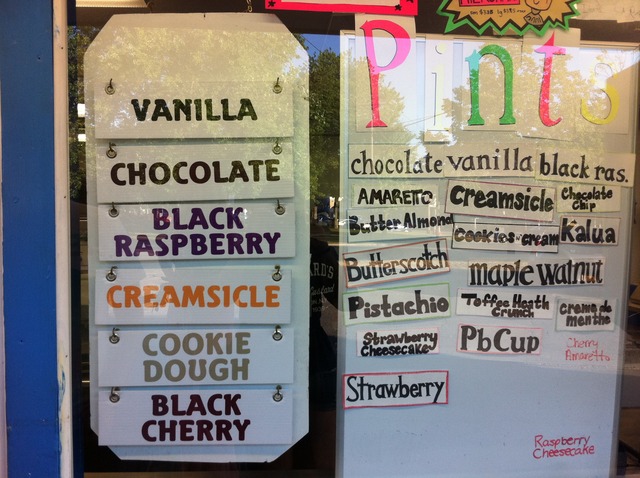 VANILLA
CHOCOLATE
BLACK
RASPBERRY
CREAMSICLE
COOKIE
DOUGH
BLACK
CHERRY
Pints
chocolate vanilla black ras.
AMARETTO Creamsicle Chocolate
Chip
Butter Almond Cookies-n-cream Kalua
Butterscotch maple walnut
Pistachio Toffee Heath
Crunch
creme de
menthe
Strawberry
Cheesecake
Pb Cup
Cherry
Amaretto
Strawberry
Raspberry
Cheesecake